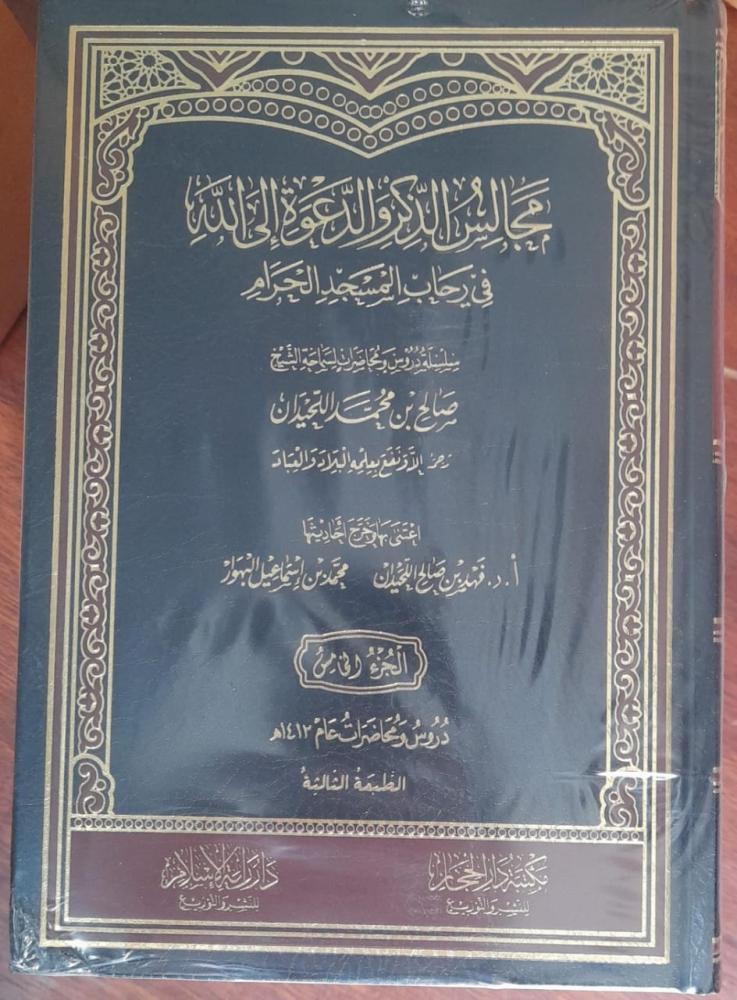 مَجَالِسُ الذِّكْرِ وَالدَّعْوَةِ إِلَى اللَّهِ
فِي رِحَابِ الْمَسْجِدِ الْحَرَامِ
سِلْسِلَةُ دُرُوسٍ وَمُحَاضَرَاتٍ لِسَمَاحَةِ الشَّيْخِ
صَالِحِ بْنِ مُحَمَّدٍ اللُّحَيْدَانِ
وَنَفَعَ بِعِلْمِهِ الْبِلَادَ وَالْعِبَادَ
اعْتَنَى بِهَا وَخَرَّجَ أَحَادِيثَهَا
أ. د. فَهْدُ بْنُ صَالِحٍ اللُّحَيْدَانُ مُحَمَّدُ بْنُ إِسْمَاعِيلَ
الْجُزْءُ الْخَامِسُ
دُرُوسُ وَمُحَاضَرَاتُ عَامْ ١٤١٢هـ
الطَّبْعَةُ الثَّالِثَةُ
مَكْتَبَةُ دَارِ الْحِجَازِ
لِلنَّشْرِ وَالتَّوْزِيعِ
دَارُ رَايَةِ الْإِسْلَامِ
لِلنَّشْرِ وَالتَّوْزِيعِ